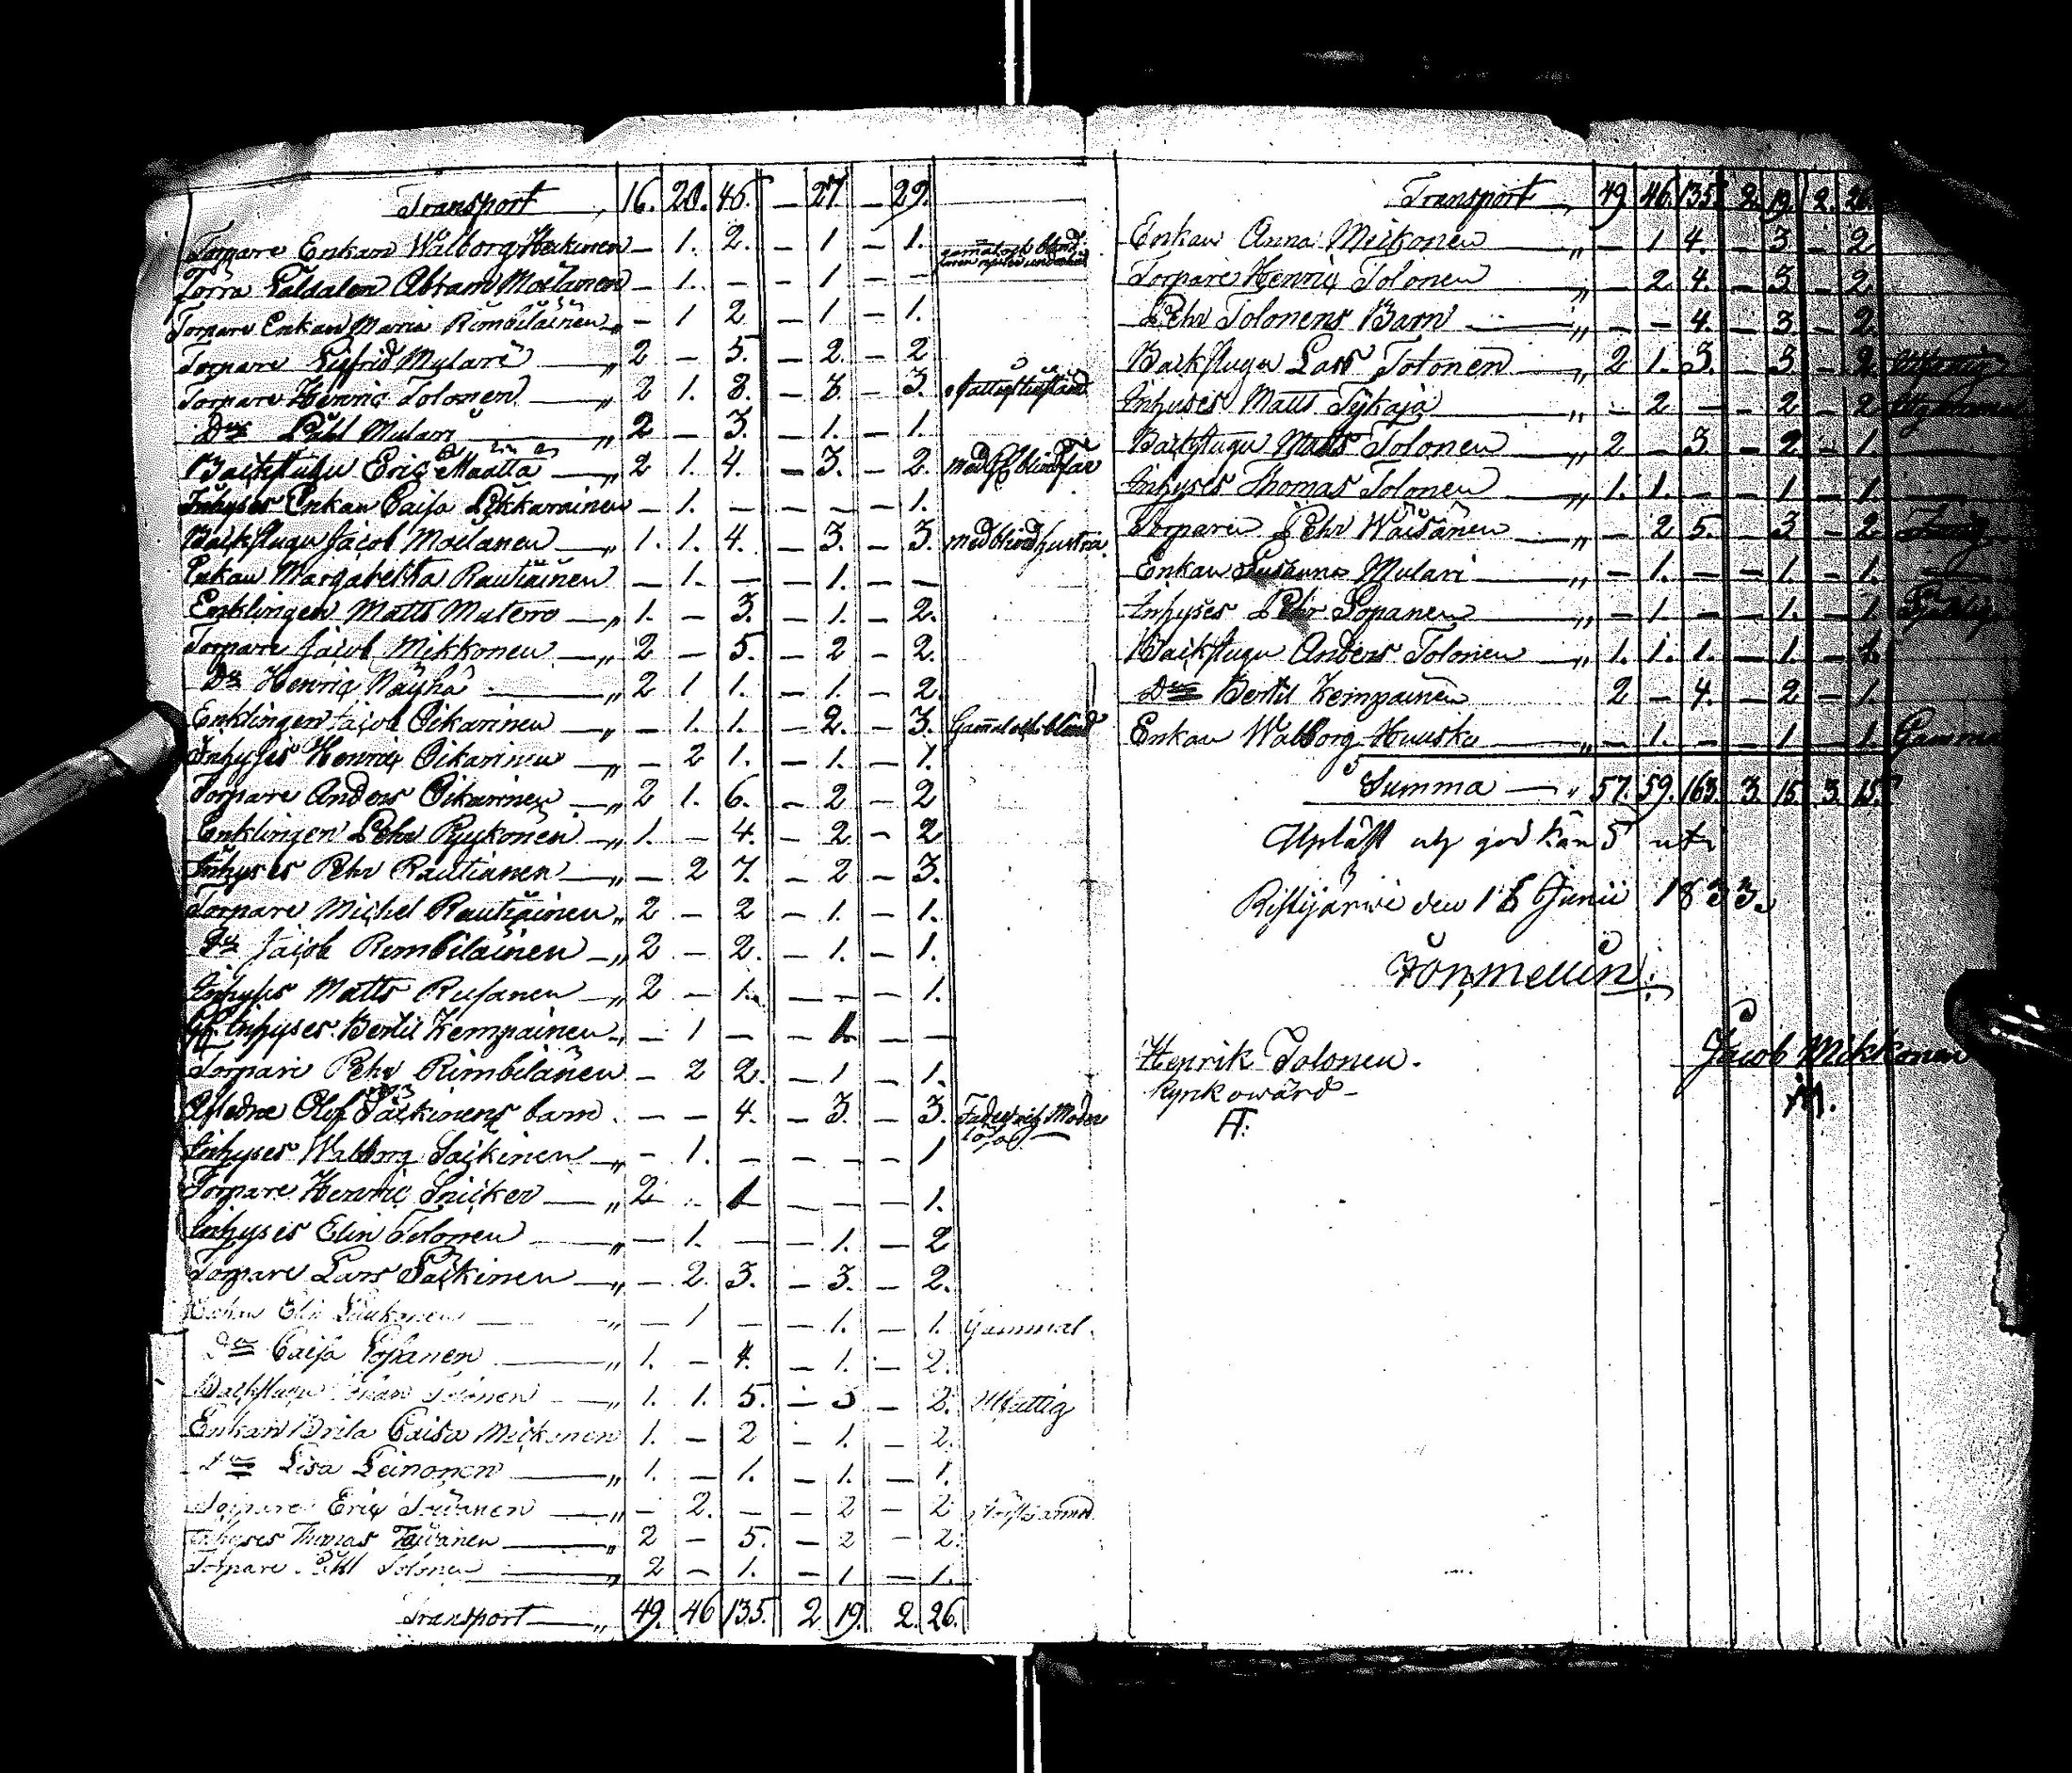 Transport 16. 20. 46. — 27 — 29.
Torpare Enkan Walborg Heikinen — 1. 2. — 1 — 1.
Abram Moilanen — 1. — — 1 — —
Torpare Enkan Maria Rimbiläinen — 1 2 — 1 — 1.
Torpare Sigfrid Mulari 2 — 5. — 2. — 2
Torpare Henric Tolonen 2 1. 8. — 3. — 3.
Do Påhl Mulari 2 — 3. — 1. — 1.
Backstugu Eric Määttä 2 1. 4. — 3. — 2. med blind far
Inhyses Enkan Caisa — 1. — — — — 1.
Backstugu Jacob Moilanen 1. 1. 4. — 3. — 3. med blind hustru
Enkan Margabeltta Rautiainen — 1. — — 1. — —
Enklingen Matts Matero 1. — 3. — 1. — 2.
Torpare Jacob Mikkonen 2 — 5. — 2 — 2.
Do Henric Näyhä 2 1 1. — 1. — 2.
Enklingen Jacob Oikarinen — 1. 1. — 2. — 3. Gammal och blind
Inhyses Henric Oikarinen — 2 1. — 1. — 1.
Torpare Anders Oikarinen 2 1. 6. — 2 — 2
Enklingen Pehr Ryykönen 1. — 4. — 2 — 2
Inhyses Pehr Rautianen — 2 7. — 2 — 3.
Torpare Michel Rautiainen 2 — 2 — 1. — 1.
Do Jacob Rimbilainen 2 — 2. — 1. — 1.
Inhyses Matts Rusanen 2 — 1. — — — 1.
Inhyses Bertil Kempainen — 1 — — 1. — —
Torpare Pehr Rimbilänen — 2 2. — 1 — 1.
Afledne Olof Säikinens barn — — 4. — 3. — 3. Fader och Moder
Inhyses Walborg Säikinen — 1. — — — — 1
Torpare Henric Snicker 2 1 — — — 1.
Inhyses Elin Tolonen — 1. — — 1. — 2
Torpare Lars Säikinen — 2. 3. — 3. — 2.
Enkan Elin — 1 — — 1. — 1. Gammal
Do Caisa Sopanen 1. — 4. — 1. — 2.
Backstugu Johan Tolonen 1. 1. 5. — 3 — 2. Utfattig
Enkan Brita Caisa Mickonen 1. — 2 — 1. — 2.
Do Lisa Leinonen 1. — 1. — 1. — 1.
Torpare Eric — 2. — — 2 — 2
Inhyses Thomas 2 — 5. — 2 — 2.
Torpare Påhl Tolonen 2 — 1. — 1 — 1.
Transport 49. 46 135. 2 19. 2. 26.
Transport 49 46. 135. 2. 19. 2. 26.
Enkan Anna Mickonen — 1 4. — 3 — 2
Torpare Henric Tolonen — 2. 4. — 3. — 2
Pehr Tolonens Barn — — 4. — 3. — 2
Backstugu Lars Tolonen 2 1. 3. — 3 — 2
Inhyses Matts Tykäjä — 2 — — 2 — 2
Backstugu Matts Tolonen 2 — 3. — 2 — 1.
Inhyses Thomas Tolonen 1. 1. — — 1 — 1.
Torparen Pehr Wäisänen — 2 5. — 3 — 2
Enkan Susanna Mulari — 1. — — 1. — 1.
Inhyses Pehr Sopanen — 1 — — 1. — 1.
Backstugu Anders Tolonen 1. 1. 1. — 1. — 1.
Do Bertil Kempainen 2 — 4. — 2 — 1.
Enkan Walborg Huusko — 1. — — 1 — 1. Gammal
Summa 57. 59. 163. 3. 15. 3. 15.
Upläst och godkänt
Ristijärwi den 16 Junii 1833.
Henrik Tolonen.
Kyrkowärd
Jacob Mikkonen